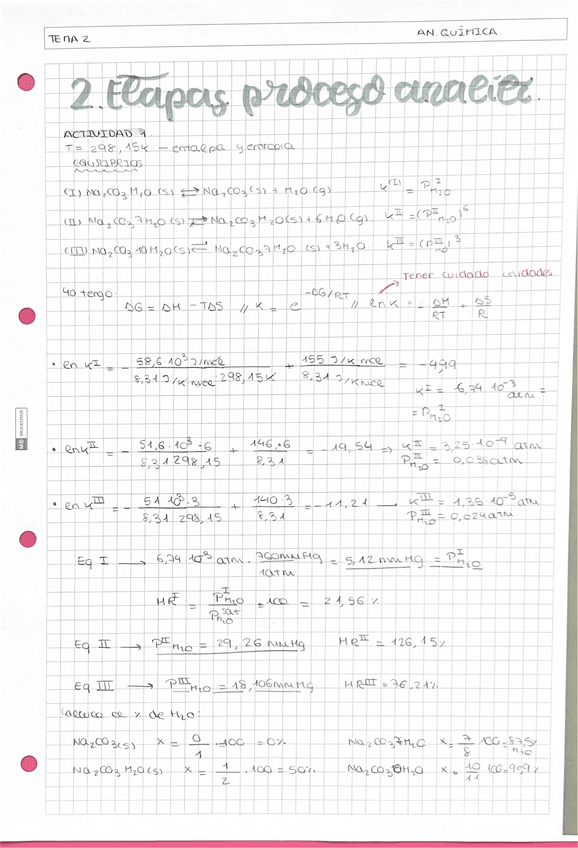 TEMA 2
AN. QUÍMICA.
2. Etapas proceso analític.
ACTIVIDAD 9.
T = 298,15K — entalpia y entropia
EQUILIBRIOS
(I) Na2CO3H2O (s) ⇄ Na2CO3(s) + H2O(g) K(I) = P^I_H2O
(II) Na2CO37H2O (s) ⇄ Na2CO3H2O(s) + 6H2O(g) K^II = (P^II_H2O)^6
(III) Na2CO310H2O(s) ⇄ Na2CO37H2O (s) + 3H2O. K^III = (P^III_H2O)^3
Tener cuidado unidades
Yo tengo:
ΔG = ΔH - TΔS // K = e^(-ΔG/RT) // ln K = - ΔH/RT + ΔS/R
• ln K^I = - 58,6·10^3 J/mol / 8,31 J/K mol · 298,15K + 155 J/K mol / 8,31 J/K mol = -4,99
K^I = 6,74·10^-3 atm =
= P^I_H2O
• ln K^II = - 51,6·10^3·6 / 8,31 298,15 + 146·6 / 8,31 = -19,54 ⇒ K^II = 3,25·10^-9 atm
P^II_H2O = 0,038atm
• ln K^III = - 51 10^3·3 / 8,31 298,15 + 140·3 / 8,31 = -11,21 → K^III = 1,35·10^-5 atm
P^III_H2O = 0,024atm
Eq I → 6,74 10^-3 atm · 760mmHg / 1atm = 5,12 mmHg = P^I_H2O
HR^I = P^I_H2O / P^sat_H2O · 100 = 21,56 %
Eq II → P^II_H2O = 29,26 mmHg HR^II = 126,15%
Eq III → P^III_H2O = 18,106mmHg HR^III = 76,21%
Cálculo de % de H2O:
Na2CO3(s) x = 0/1 · 100 = 0% Na2CO37H2O x = 7/8 · 100 = 87,5% H2O
Na2CO3H2O(s) x = 1/2 · 100 = 50% Na2CO310H2O x = 10/11 · 100 = 90,9%
MIQUELRIUS